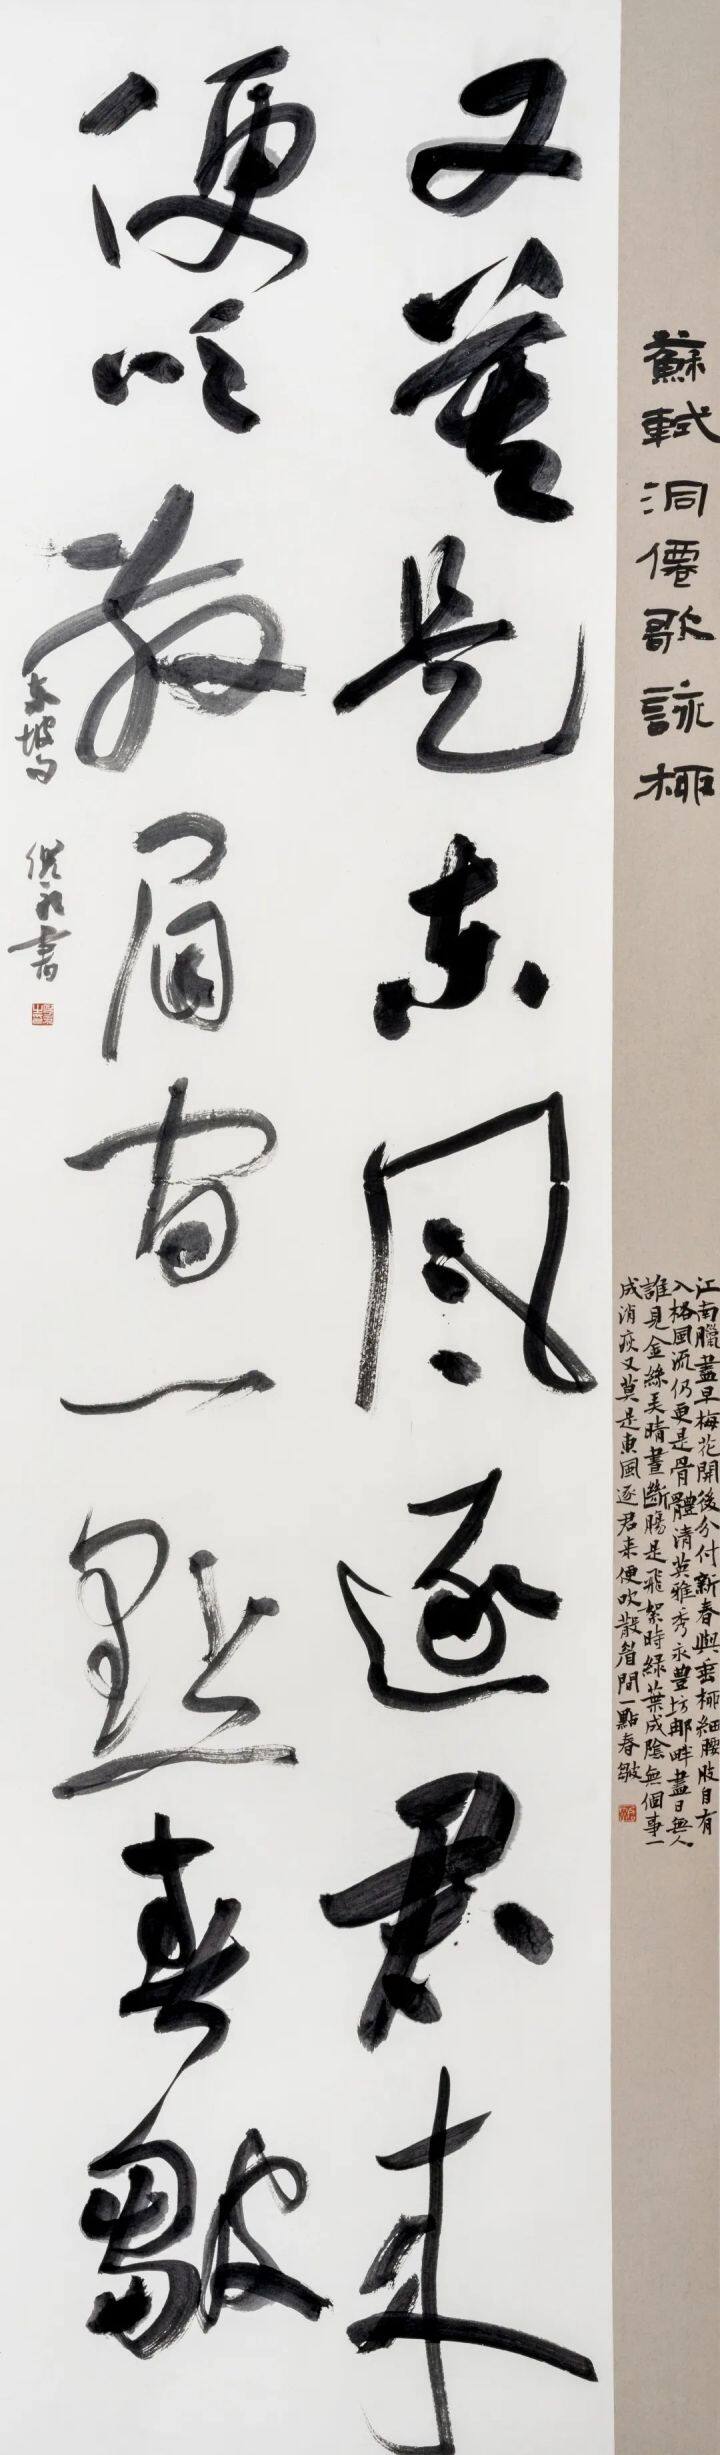 蘇軾洞僊歌詠柳
江南臘盡早梅花開後分付新春與垂柳細腰肢自有
入格風流仍更是骨體清英雅秀永豐坊那畔盡日無人
誰見金絲弄晴晝斷腸是飛絮時綠葉成陰無個事一
成消瘦又莫是東風逐君来便吹散眉間一點春皺
又莫是东风逐君来
便吹散眉间一點春皺
东坡句
書